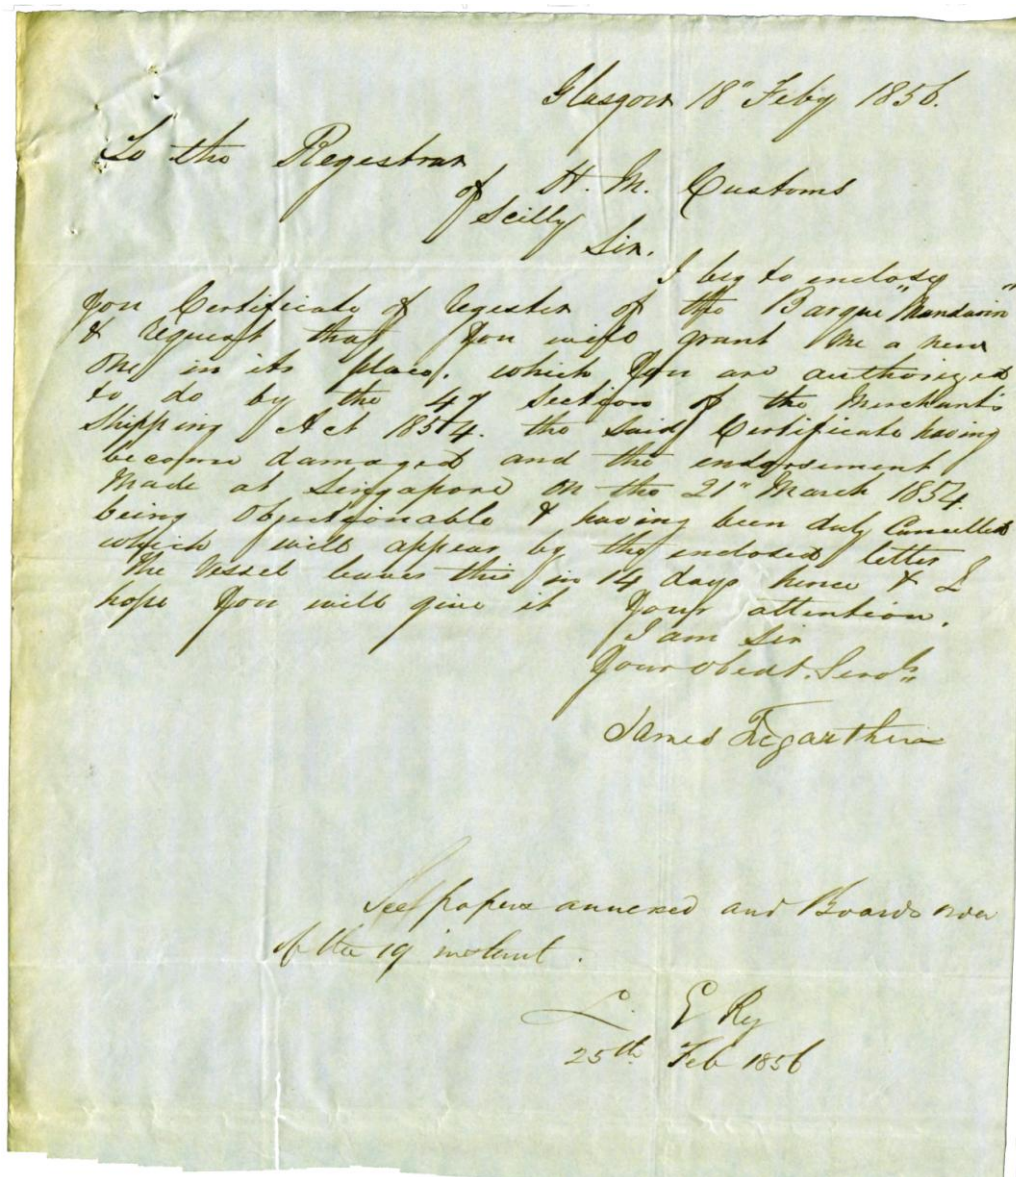 Glasgow 18" Feby 1856.
To the Registrar
of H. M. Customs
Scilly
Sir.
I beg to enclose
you Certificate of register of the Barque "Mandarin"
& request that you will grant me a new
one in its place. which you are authorized
to do by the 47 section of the Merchants
Shipping Act 1854. the said Certificate having
become damaged and the endorsement
Made at Singapore on the 21" March 1854
being objectionable & having been duly Cancelled
which will appear by the enclosed letter
The Vessel leaves this in 14 days hence & I
hope you will give it your attention.
I am Sir
Your obedt. Servt
James
See papers annexed and Boards order
of the 19 instant.
25th Feb 1856